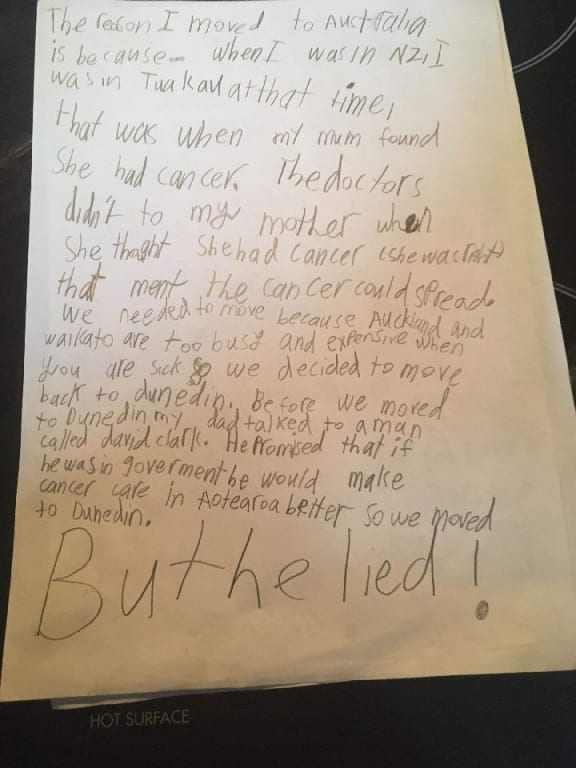 The reason I moved to Australia
is because when I was in NZ, I
was in Tuakau at that time,
that was when my mum found
She had cancer. The doctors
didn't to my mother when
She thoght She had cancer (she was right)
that ment the cancer could spread.
We needed to move because Auckland and
waikato are too busy and expensive when
you are sick so we decided to move
back to dunedin. Before we moved
to Dunedin my dad talked to a man
called david clark. He Promised that if
he was in goverment he would make
cancer care in Aotearoa better so we moved
to Dunedin.
But he lied!
HOT SURFACE